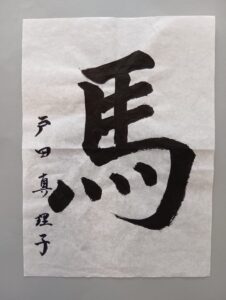 馬
戸田真理子